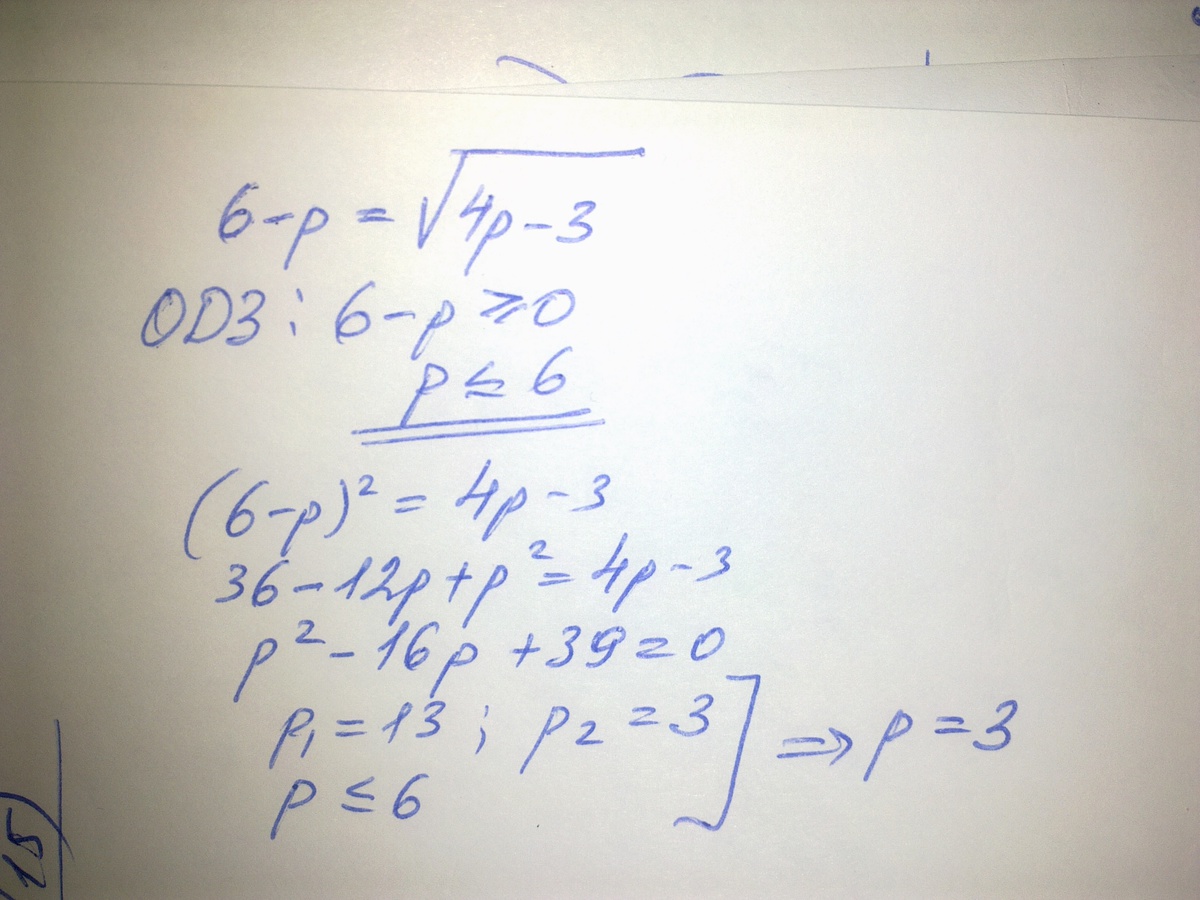 6-p = √4p-3
ОDЗ: 6-p ≥ 0
p ≤ 6
(6-p)² = 4p-3
36-12p+p² = 4p-3
p²-16p+39=0
p₁=13; p₂=3] ⇒ p=3
p ≤ 6
15